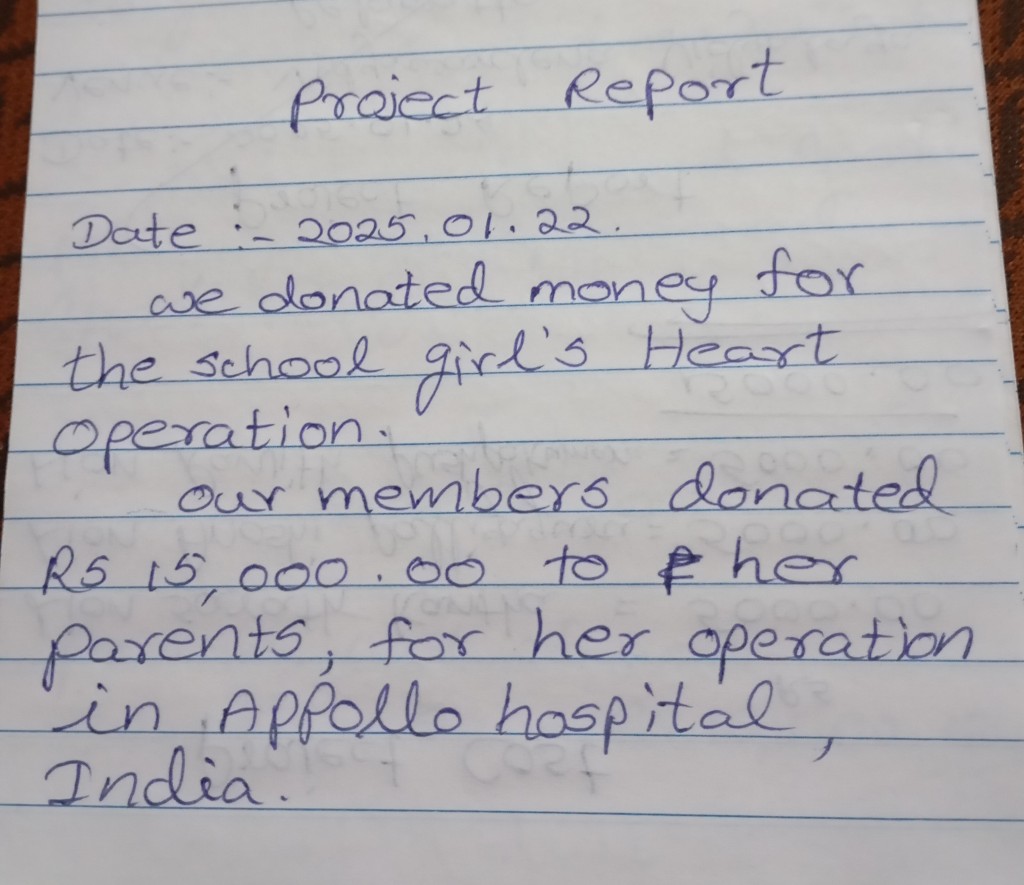 Project Report
Date :- 2025.01.22.
we donated money for
the school girl's Heart
operation.
our members donated
RS 15,000.00 to her
parents, for her operation
in Appollo hospital,
India.